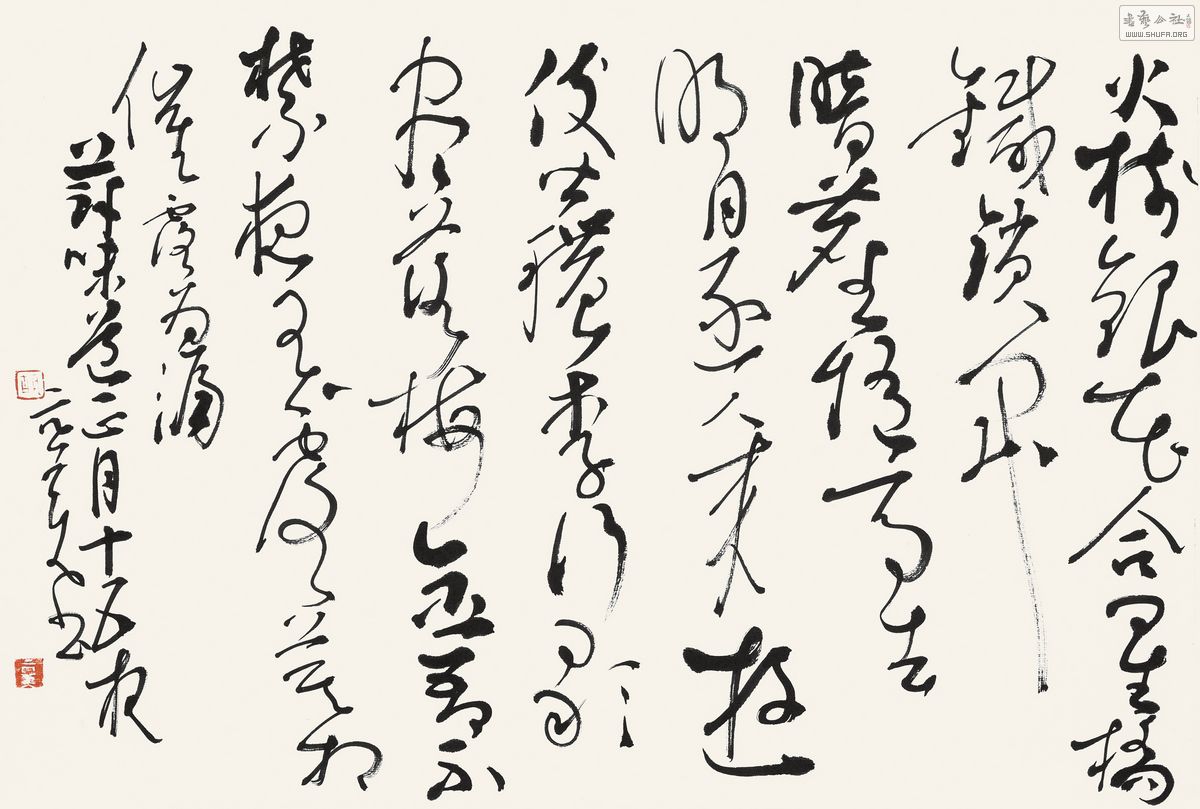 火樹銀花合星橋
鐵鎖開
暗塵隨馬去
明月逐人來遊
伎皆穠李行歌
盡落梅金吾不
禁夜玉露莫相
催 露為漏
蘇味道正月十五夜
書
書藝公社
WWW.SHUFA.ORG